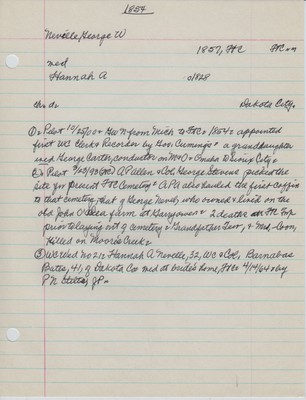 1854
Neville, George W
1857, FtC FtC nn
med
Hannah A c1828
ch. d. Dakota City.
① Pilot 10/25/00 GWN from Mich to FtC 1854 appointed
first WC Clerk & Recorder by Gov. Cuming a granddaughter
med George Carter, conductor on M&O Omaha Sioux City
② Pilot AP Allen & Col George Stevens picked the
site for present FtC Cemetery APA also hauled the first coffin
to that cemetery, that of George Nevel, who owned & lived on the
old John O'Dea farm at 2 deaths FtC Twp
prior to laying out of cemetery Grandfather & Med, Coon,
killed on Moores Creek
③ WC Wed No 212 Hannah A Neville, 32, WC & Col, Barnabas
Bates, 41, of Dakota Co med at bride's home, FtC 4/14/64 by
P N JP.